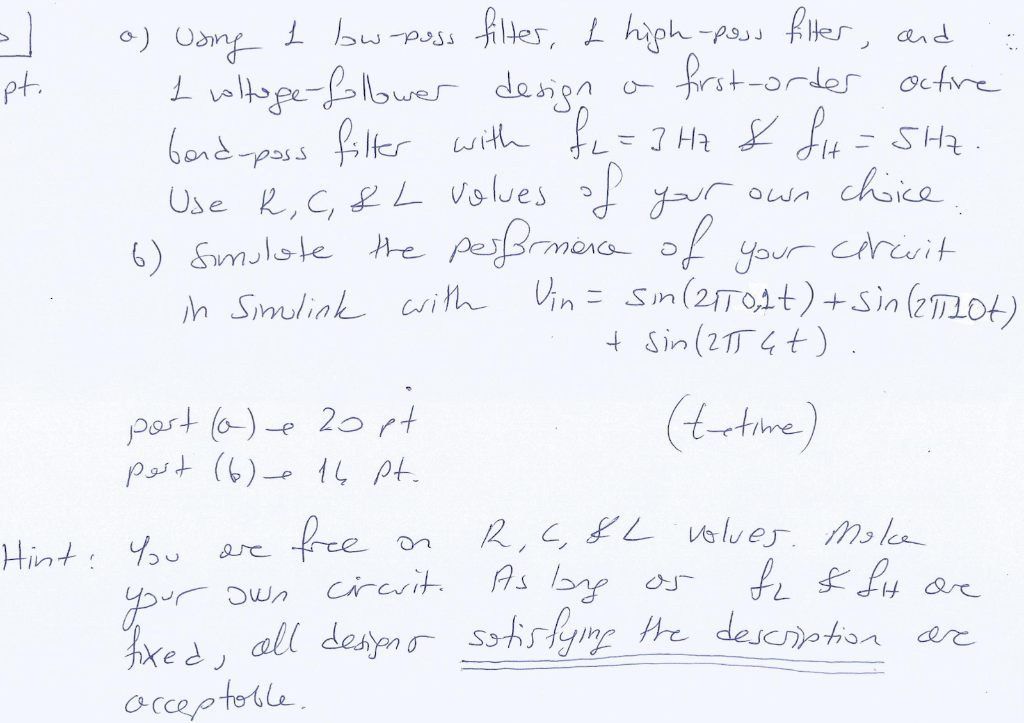 a) Using 1 low-pass filter, 1 high-pass filter, and
pt. 1 voltage-follower design a first-order active
band-pass filter with fL = 3 Hz & fH = 5Hz.
Use R, C, & L values of your own choice.
b) Simulate the performance of your circuit
in Simulink with Vin = sin(2π0,1t) + sin(2π10t)
+ sin(2π4t).
part (a) → 20 pt
(t→time)
part (b) → 14 pt.
Hint: You are free on R, C, & L values. Make
your own circuit. As long as fL & fH are
fixed, all designs satisfying the description are
acceptable.